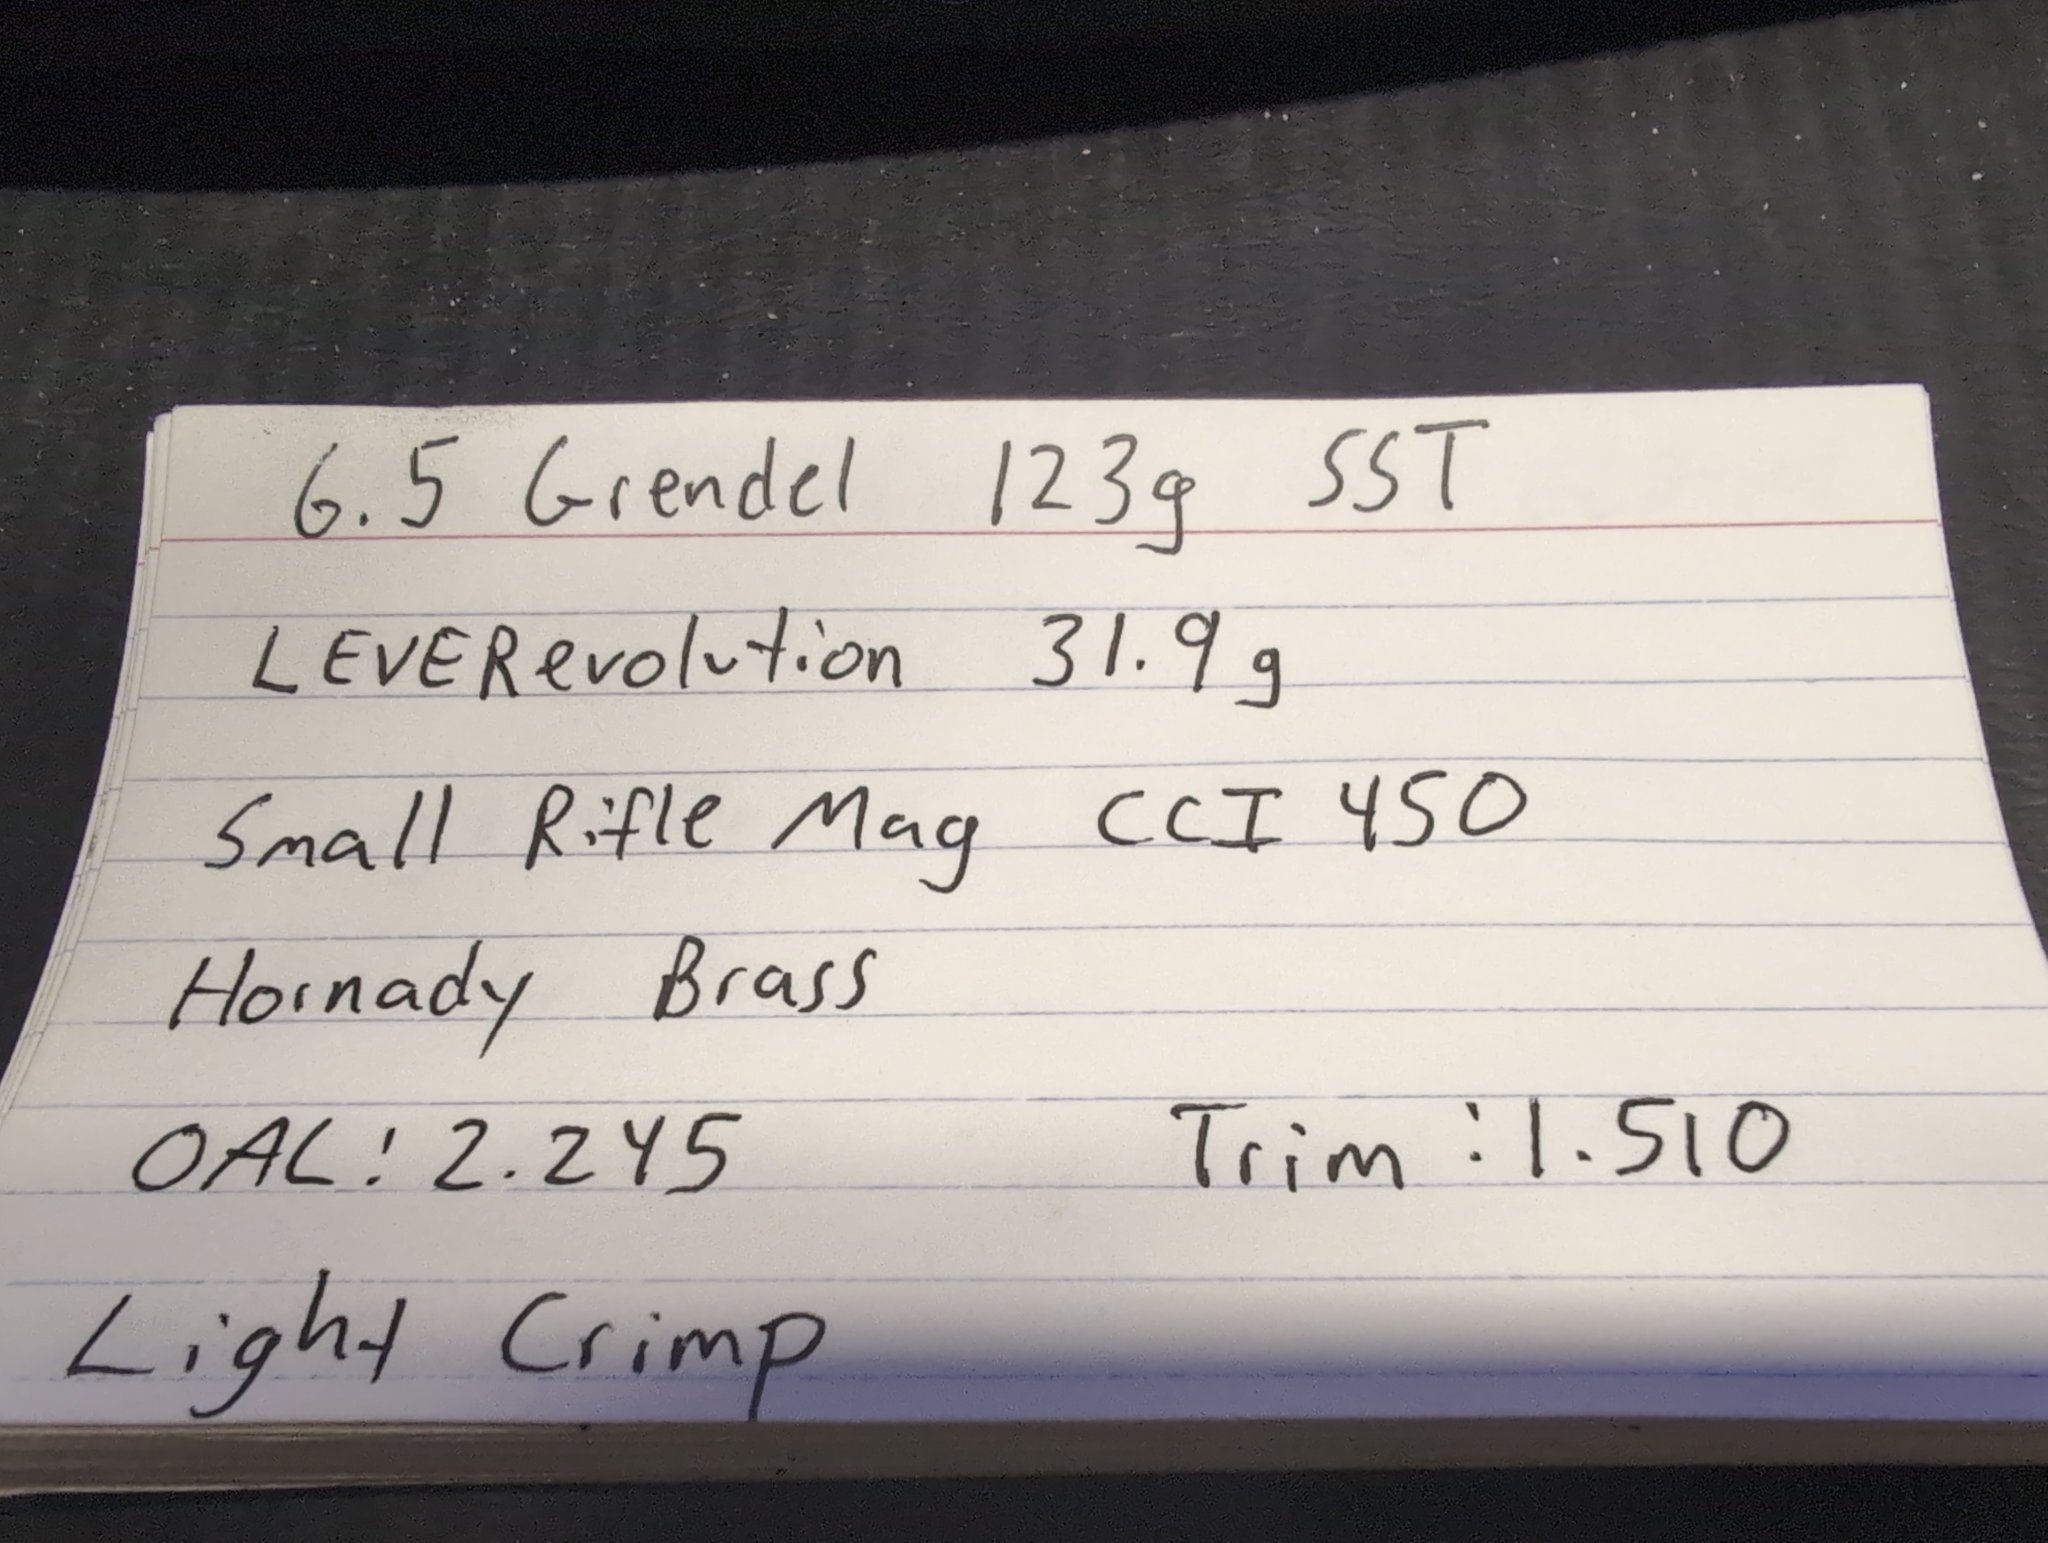 6.5 Grendel 123g SST
LEVERevolution 31.9g
Small Rifle Mag CCI 450
Hornady Brass
OAL: 2.245 Trim: 1.510
Light Crimp